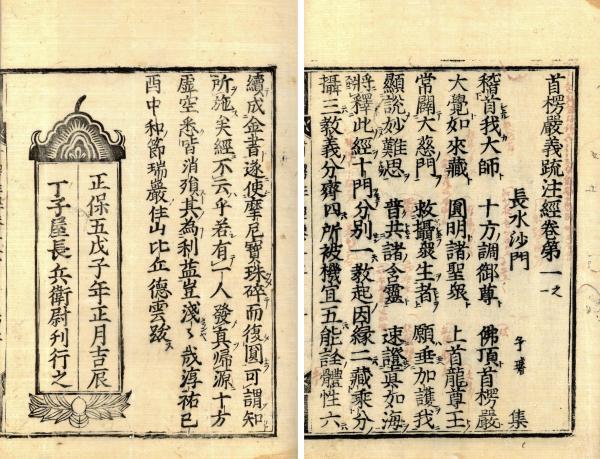 首楞嚴義疏注經卷第一之一
長水沙門 子璿 集
稽首我大師 十方調御尊 佛頂首楞嚴
大覺如來藏 圓明諸聖衆 上首龍尊王
常闢大慈門 救攝羣生者 願垂加護我
顯說妙難思 普共諸含靈 速證真如海
將釋此經十門分別一教起因緣二藏乘分
攝三教義分齊四所被機宜五能詮體性六
續成金書遂使摩尼寶珠碎而復圓可謂知
所施矣經不云乎若有一人發真歸源十方
虛空悉皆消殞其為利益豈淺淺哉淳祐己
酉中和節瑞巖住山比丘德雲跋
正保五戊子年正月吉辰
丁子屋長兵衛尉刊行之